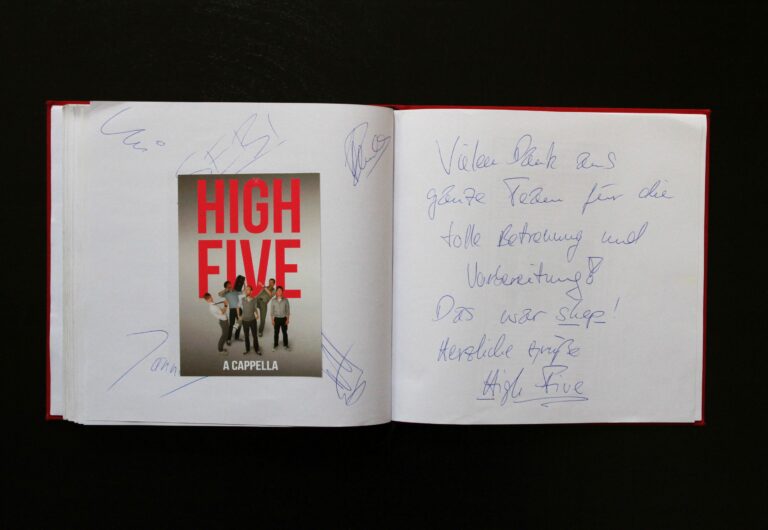 HIGH
FIVE
A CAPPELLA
Vielen Dank ans
ganze Team für die
tolle Betreuung und
Vorbereitung!
Das war super!
Herzliche Grüße
High Five